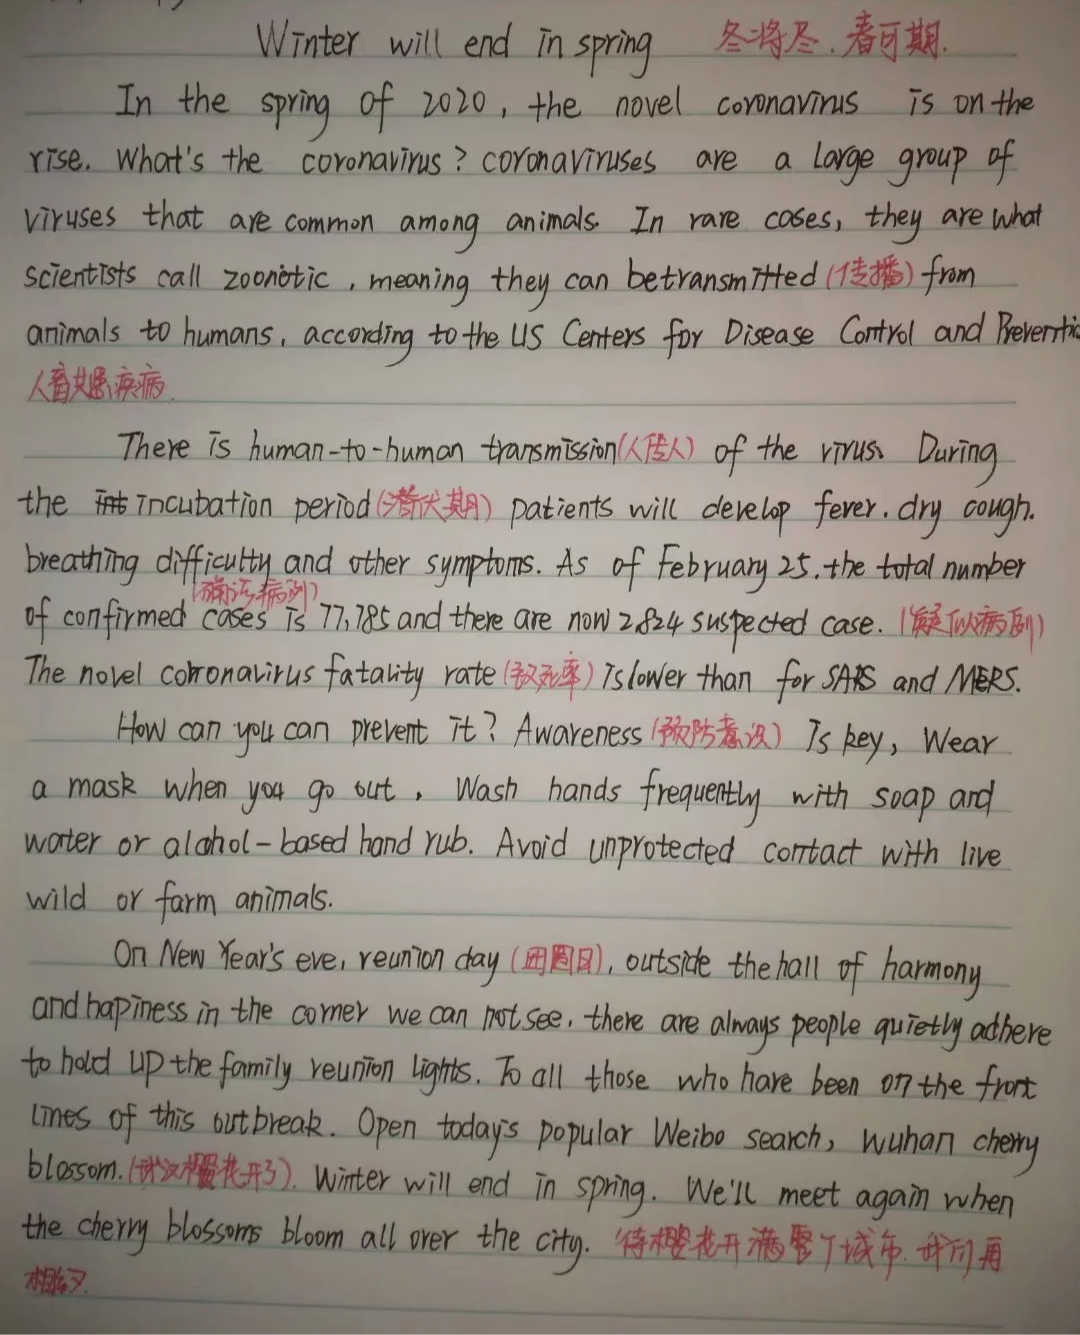 Winter will end in spring 冬将尽.春可期.
In the spring of 2020, the novel coronavirus is on the
rise. What's the coronavirus? coronaviruses are a large group of
viruses that are common among animals. In rare cases, they are what
scientists call zoonotic, meaning they can be transmitted (传播) from
animals to humans, according to the US Centers for Disease Control and Preventio
人畜共患疾病.
There is human-to-human transmission (人传人) of the virus. During
the incubation period (潜伏期) patients will develop fever. dry cough.
breathing difficulty and other symptoms. As of February 25. the total number
(确诊病例)
of confirmed cases is 77,785 and there are now 2824 suspected case. (疑似病例)
The novel coronavirus fatality rate (致死率) is lower than for SARS and MERS.
How can you can prevent it? Awareness (预防意识) Is key, Wear
a mask when you go out, Wash hands frequently with soap and
water or alcohol-based hand rub. Avoid unprotected contact with live
wild or farm animals.
On New Year's eve, reunion day (团圆日), outside the hall of harmony
and hapiness in the corner we can not see, there are always people quietly adhere
to hold up the family reunion lights. To all those who have been on the front
lines of this outbreak. Open today's popular Weibo search, wuhan cherry
blossom. (武汉樱花开了). Winter will end in spring. We'll meet again when
the cherry blossoms bloom all over the city. 待樱花开满整个城市.我们再
相约.